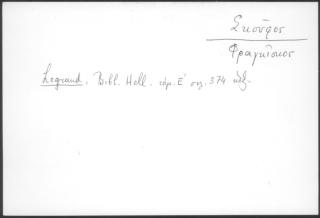 Σκοῦφος
Φραγκῖσκος
Legrand, Bibl. Hell. τόμ. Ε' σελ. 374 κἑξ.